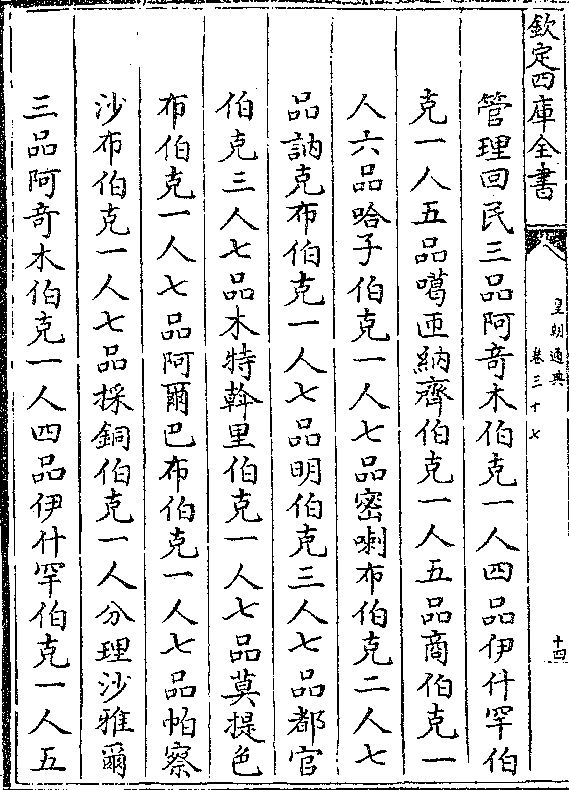 欽定四庫全書
皇朝通典
卷三十七
十四
管理回民三品阿奇木伯克一人四品伊什罕伯
克一人五品噶匝納齊伯克一人五品商伯克一
人六品哈子伯克一人七品密喇布伯克二人七
品訥克布伯克一人七品明伯克三人七品都官
伯克三人七品木特斡里伯克一人七品莫提色
布伯克一人七品阿爾巴布伯克一人七品帕察
沙布伯克一人七品採銅伯克一人分理沙雅爾
三品阿奇木伯克一人四品伊什罕伯克一人五